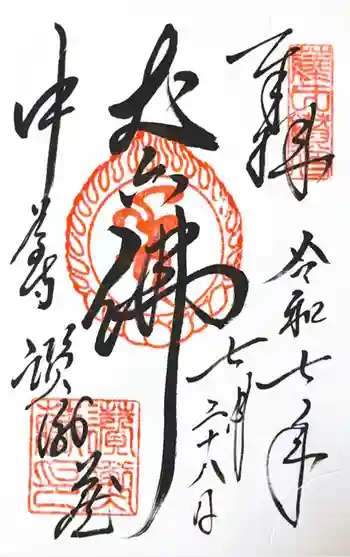 奉拝
令和七年
七月二十八日
丈六佛
中尊寺
讃衡蔵